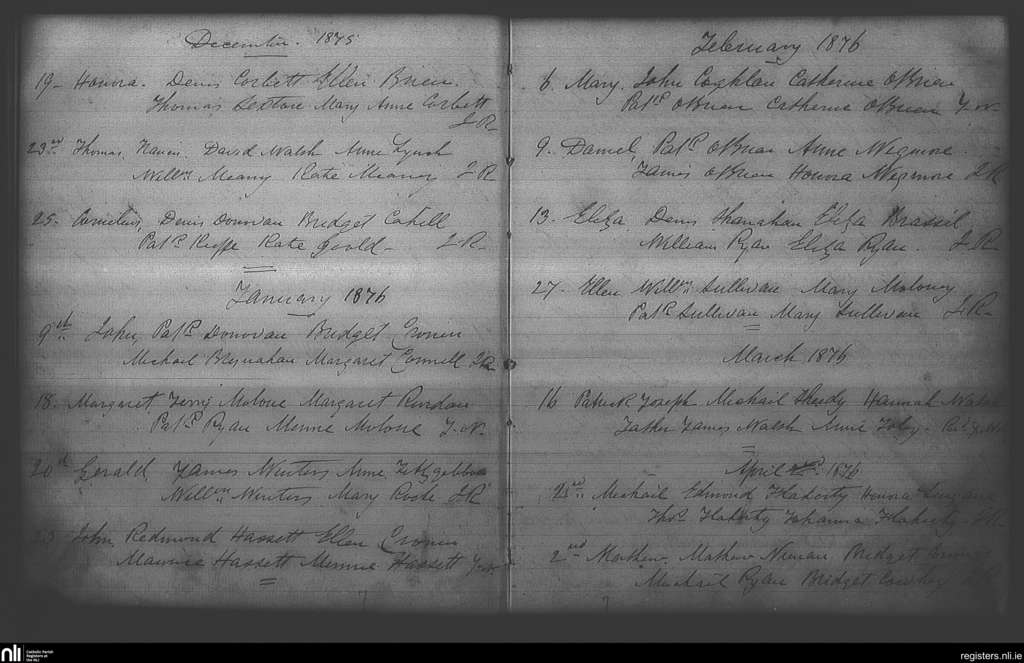 December. 1875
19- Honora. Denis Corbett Ellen Brien.
Thomas Sexton Mary Anne Corbett
J.R-
23rd. Thomas, David Walsh Anne Lynch
Willm Meany Kate Meaney J R
25. Cornelius, Denis Donovan Bridget Cahill
Patk Keeffe Kate Goold- J.R-
January 1876
9th John, Patk Donovan Bridget Cronin
Michael Margaret Connell J.R
18. Margaret, Molone Margaret Riordan
Patk Ryan Minnie Molone J.N.
20th Gerald James Winters Anne Fitzgibbon
Willm Winters Mary Roche J.R
John Redmond Hassett Ellen Cronin
Maurice Hassett Minnie Hassett
February 1876
6. Mary. John Coghlan Catherine O'Brien
Patk O'Brien Catherine O'Brien J.N.
9. Daniel Patk O'Brien Anne
James O'Brien Honora J.R
13. Eliza Denis Shanahan Eliza Brassil
William Ryan Eliza Ryan. J.R-
27- Ellen Willm Sullivan Mary Molony
Patk Sullivan Mary Sullivan J.R-
March 1876
16 Patrick Joseph Michael Sheedy Hannah Walsh
Father James Walsh Annie Foley-
April 1876
Michael Edmond Flaherty Honora
Thos Flaherty Johanna Flaherty
2nd Mathew. Mathew Bridget
Michael Ryan Bridget
7
7
nli
Catholic Parish
Registers at
the NLI
registers.nli.ie